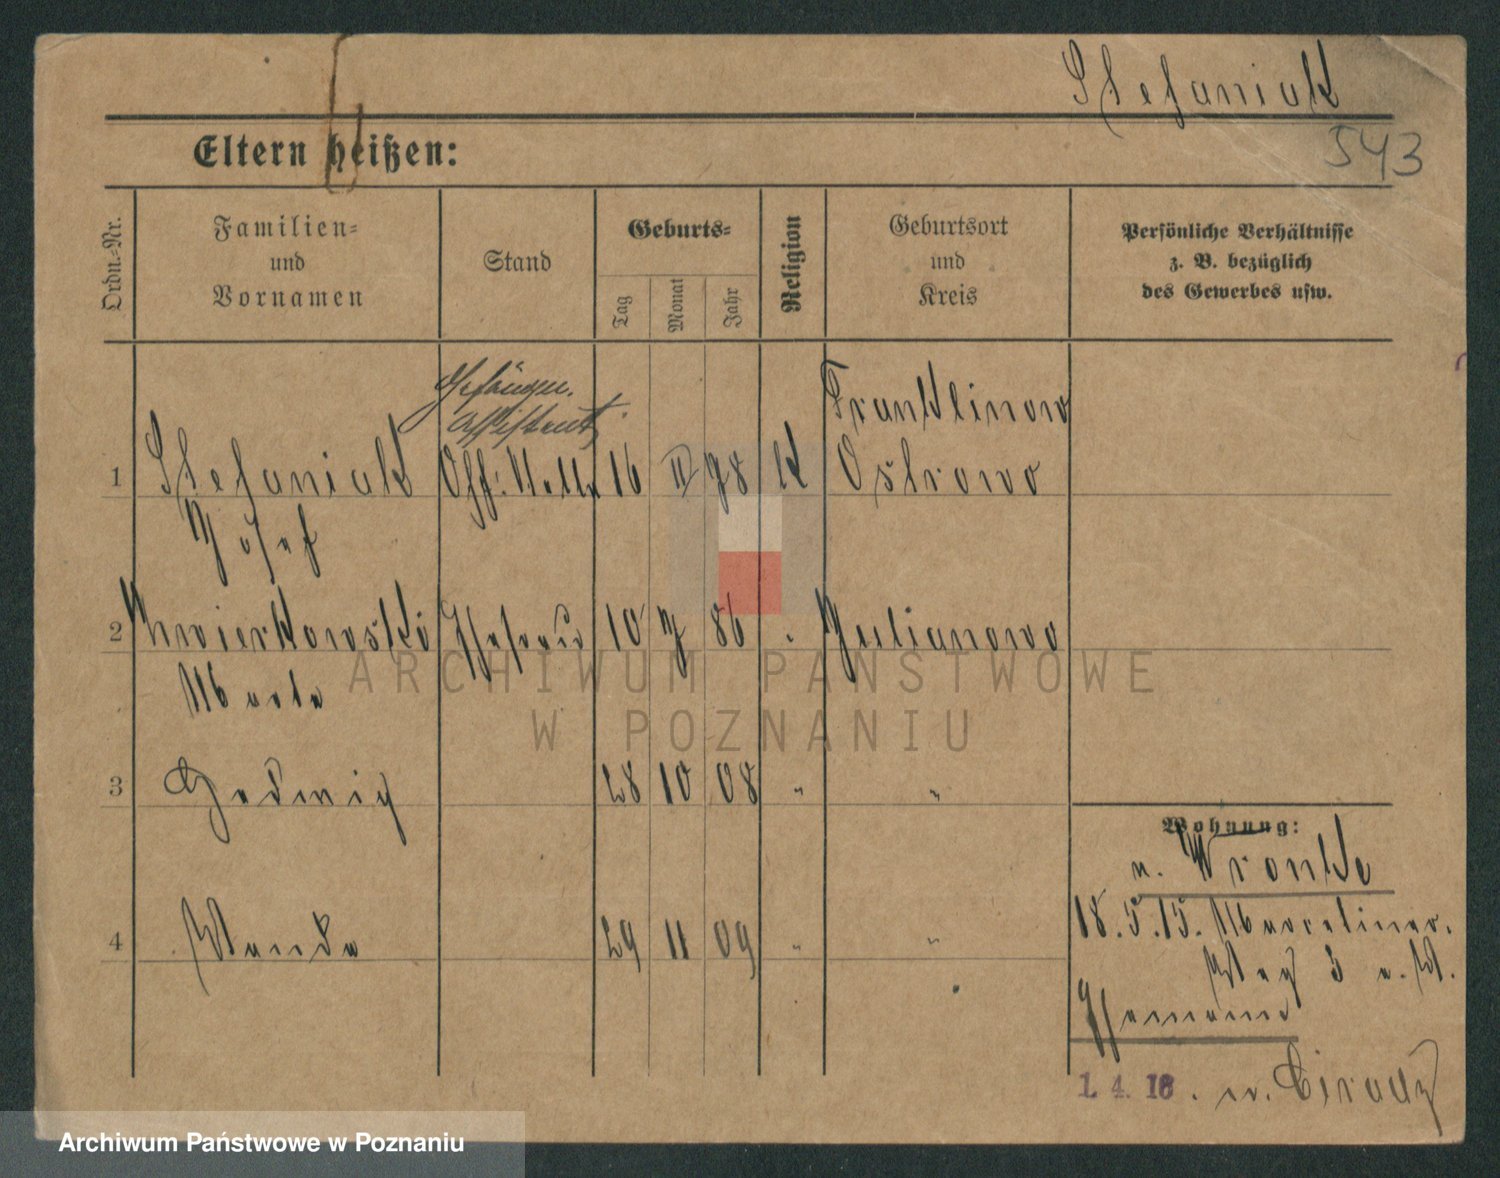 Stefaniak
543
Eltern heißen:
Ordn.-Nr.
Familien-
und
Vornamen
Stand
Geburts-
Tag
Monat
Jahr
Religion
Geburtsort
und
Kreis
Persönliche Verhältnisse
z. B. bezüglich
des Gewerbes usw.
Gefängn.
Assistent
Franklinow
1 Stefaniak 16 II 78 K Ostrowo
Josef
2 Kwierkowski Ehefrau 10 7 86 " Julianowo
Marta
3 Hedwig 28 10 08 " "
4 Wanda 29 11 09 " "
Wohnung:
n. Wronke
18.5.15. Marceliner.
Weg 3 a. W.
Hermann
1. 4. 16. n.
ARCHIWUM PAŃSTWOWE
W POZNANIU
Archiwum Państwowe w Poznaniu